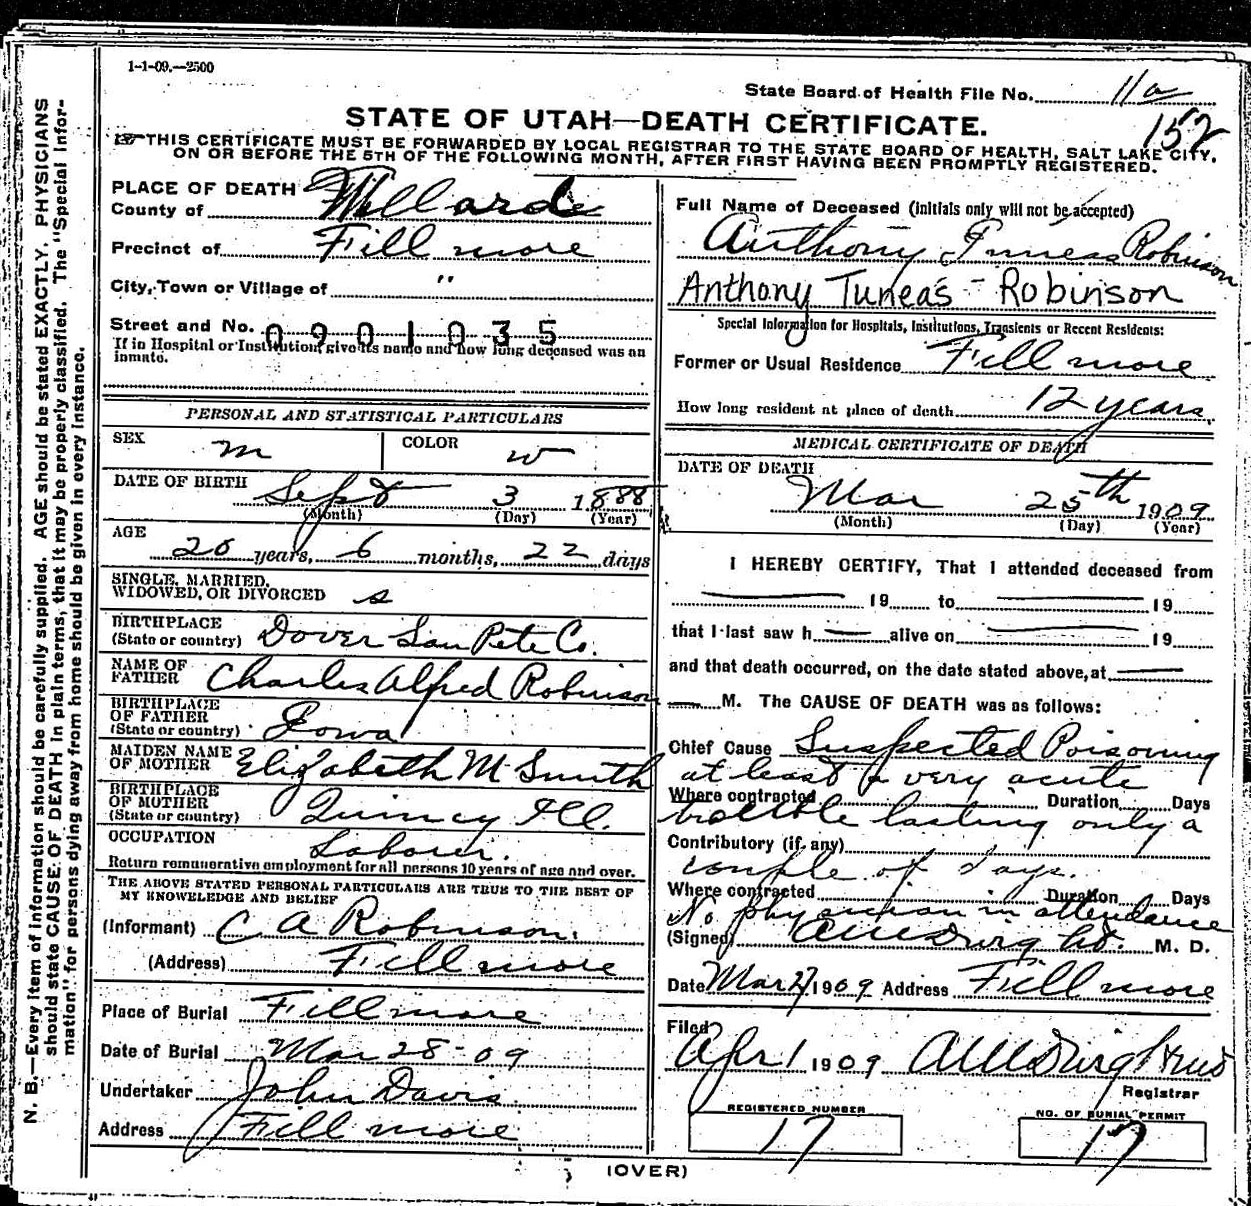 1-1-09.—2500
State Board of Health File No. 11a
152
STATE OF UTAH—DEATH CERTIFICATE.
THIS CERTIFICATE MUST BE FORWARDED BY LOCAL REGISTRAR TO THE STATE BOARD OF HEALTH, SALT LAKE CITY,
ON OR BEFORE THE 5TH OF THE FOLLOWING MONTH, AFTER FIRST HAVING BEEN PROMPTLY REGISTERED.
N. B.—Every item of information should be carefully supplied. AGE should be stated EXACTLY. PHYSICIANS
should state CAUSE OF DEATH in plain terms, that it may be properly classified. The "Special Infor-
mation" for persons dying away from home should be given in every instance.
PLACE OF DEATH
County of Millard
Precinct of Fillmore
City, Town or Village of "
Street and No. 0901035
If in Hospital or Institution, give its name and how long deceased was an
inmate.
PERSONAL AND STATISTICAL PARTICULARS
SEX m COLOR w
DATE OF BIRTH Sept 3 1888
(Month) (Day) (Year)
AGE
20 years, 6 months, 22 days
SINGLE, MARRIED,
WIDOWED, OR DIVORCED s
BIRTHPLACE
(State or country) Dover San Pete Co.
NAME OF
FATHER Charles Alfred Robinson
BIRTHPLACE
OF FATHER
(State or country) Iowa
MAIDEN NAME
OF MOTHER Elizabeth M Smith
BIRTHPLACE
OF MOTHER
(State or country) Quincy Ill.
OCCUPATION Laborer.
Return remunerative employment for all persons 10 years of age and over.
THE ABOVE STATED PERSONAL PARTICULARS ARE TRUE TO THE BEST OF
MY KNOWLEDGE AND BELIEF
(Informant) C A Robinson.
(Address) Fillmore
Place of Burial Fillmore
Date of Burial Mar 28-09
Undertaker John Davis
Address Fillmore
Full Name of Deceased (initials only will not be accepted)
Anthony Robinson
Anthony Tuneas - Robinson
Special Information for Hospitals, Institutions, Transients or Recent Residents:
Former or Usual Residence Fillmore
How long resident at place of death 12 years
MEDICAL CERTIFICATE OF DEATH
DATE OF DEATH
Mar 25th 1909
(Month) (Day) (Year)
I HEREBY CERTIFY, That I attended deceased from
— 19 to — 19
that I last saw h — alive on — 19
and that death occurred, on the date stated above, at —
— M. The CAUSE OF DEATH was as follows:
Chief Cause Suspected Poisoning
at least a very acute
Where contracted Duration Days
trouble lasting only a
Contributory (if any)
couple of days.
Where contracted Duration Days
No physician in attendance
(Signed) M. D.
Date Mar 27 1909 Address Fillmore
Filed
Apr 1 1909
Registrar
REGISTERED NUMBER
17
NO. OF BURIAL PERMIT
17
(OVER)